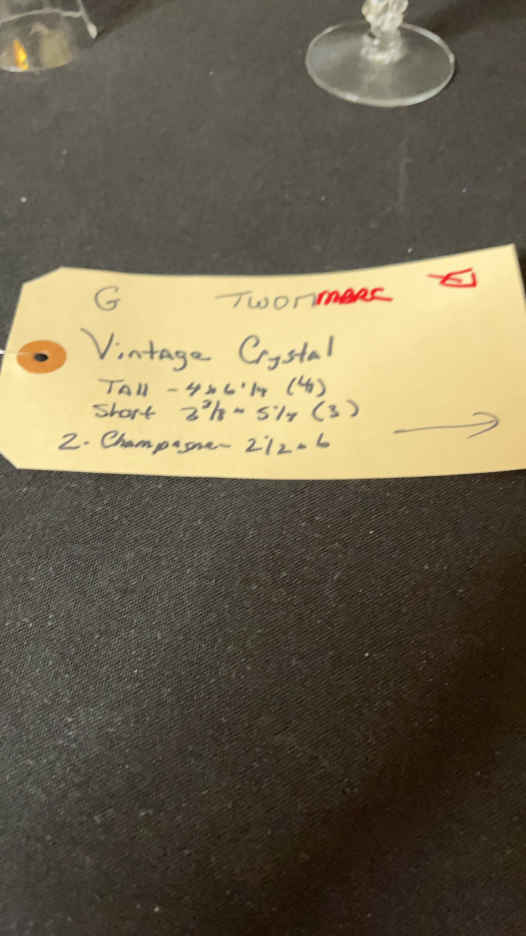 G
Vintage Crystal
Tall - 4 x 6 1/4 (4)
Short 3 3/8 x 5 1/4 (3)
2 - Champagne - 2 1/2 x 6